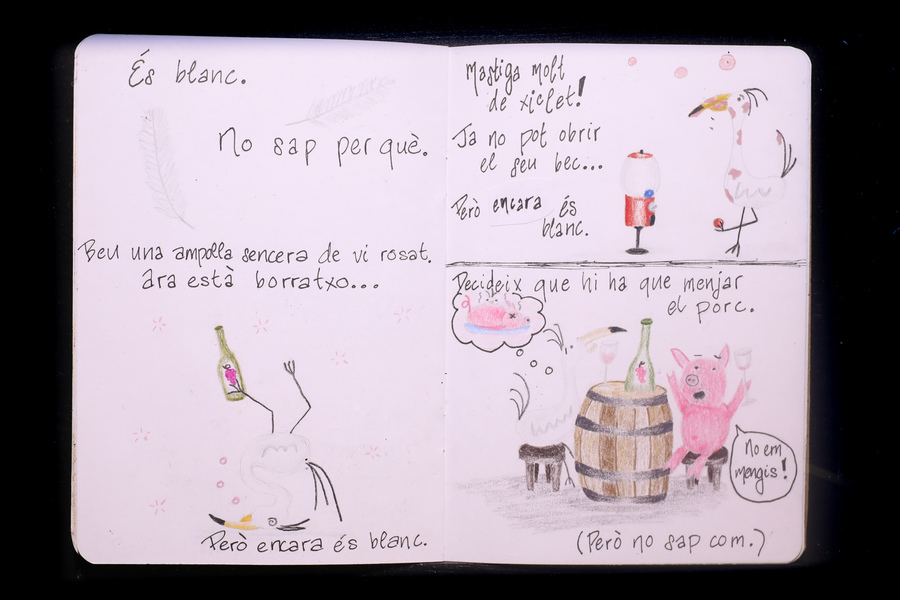 És blanc.
No sap per què.
Beu una ampolla sencera de vi rosat.
Ara està borratxo...
Però encara és blanc.
Mastiga molt
de xiclet!
Ja no pot obrir
el seu bec...
Però encara és
blanc.
Decideix que hi ha que menjar
el porc.
No em
mengis!
(Però no sap com.)